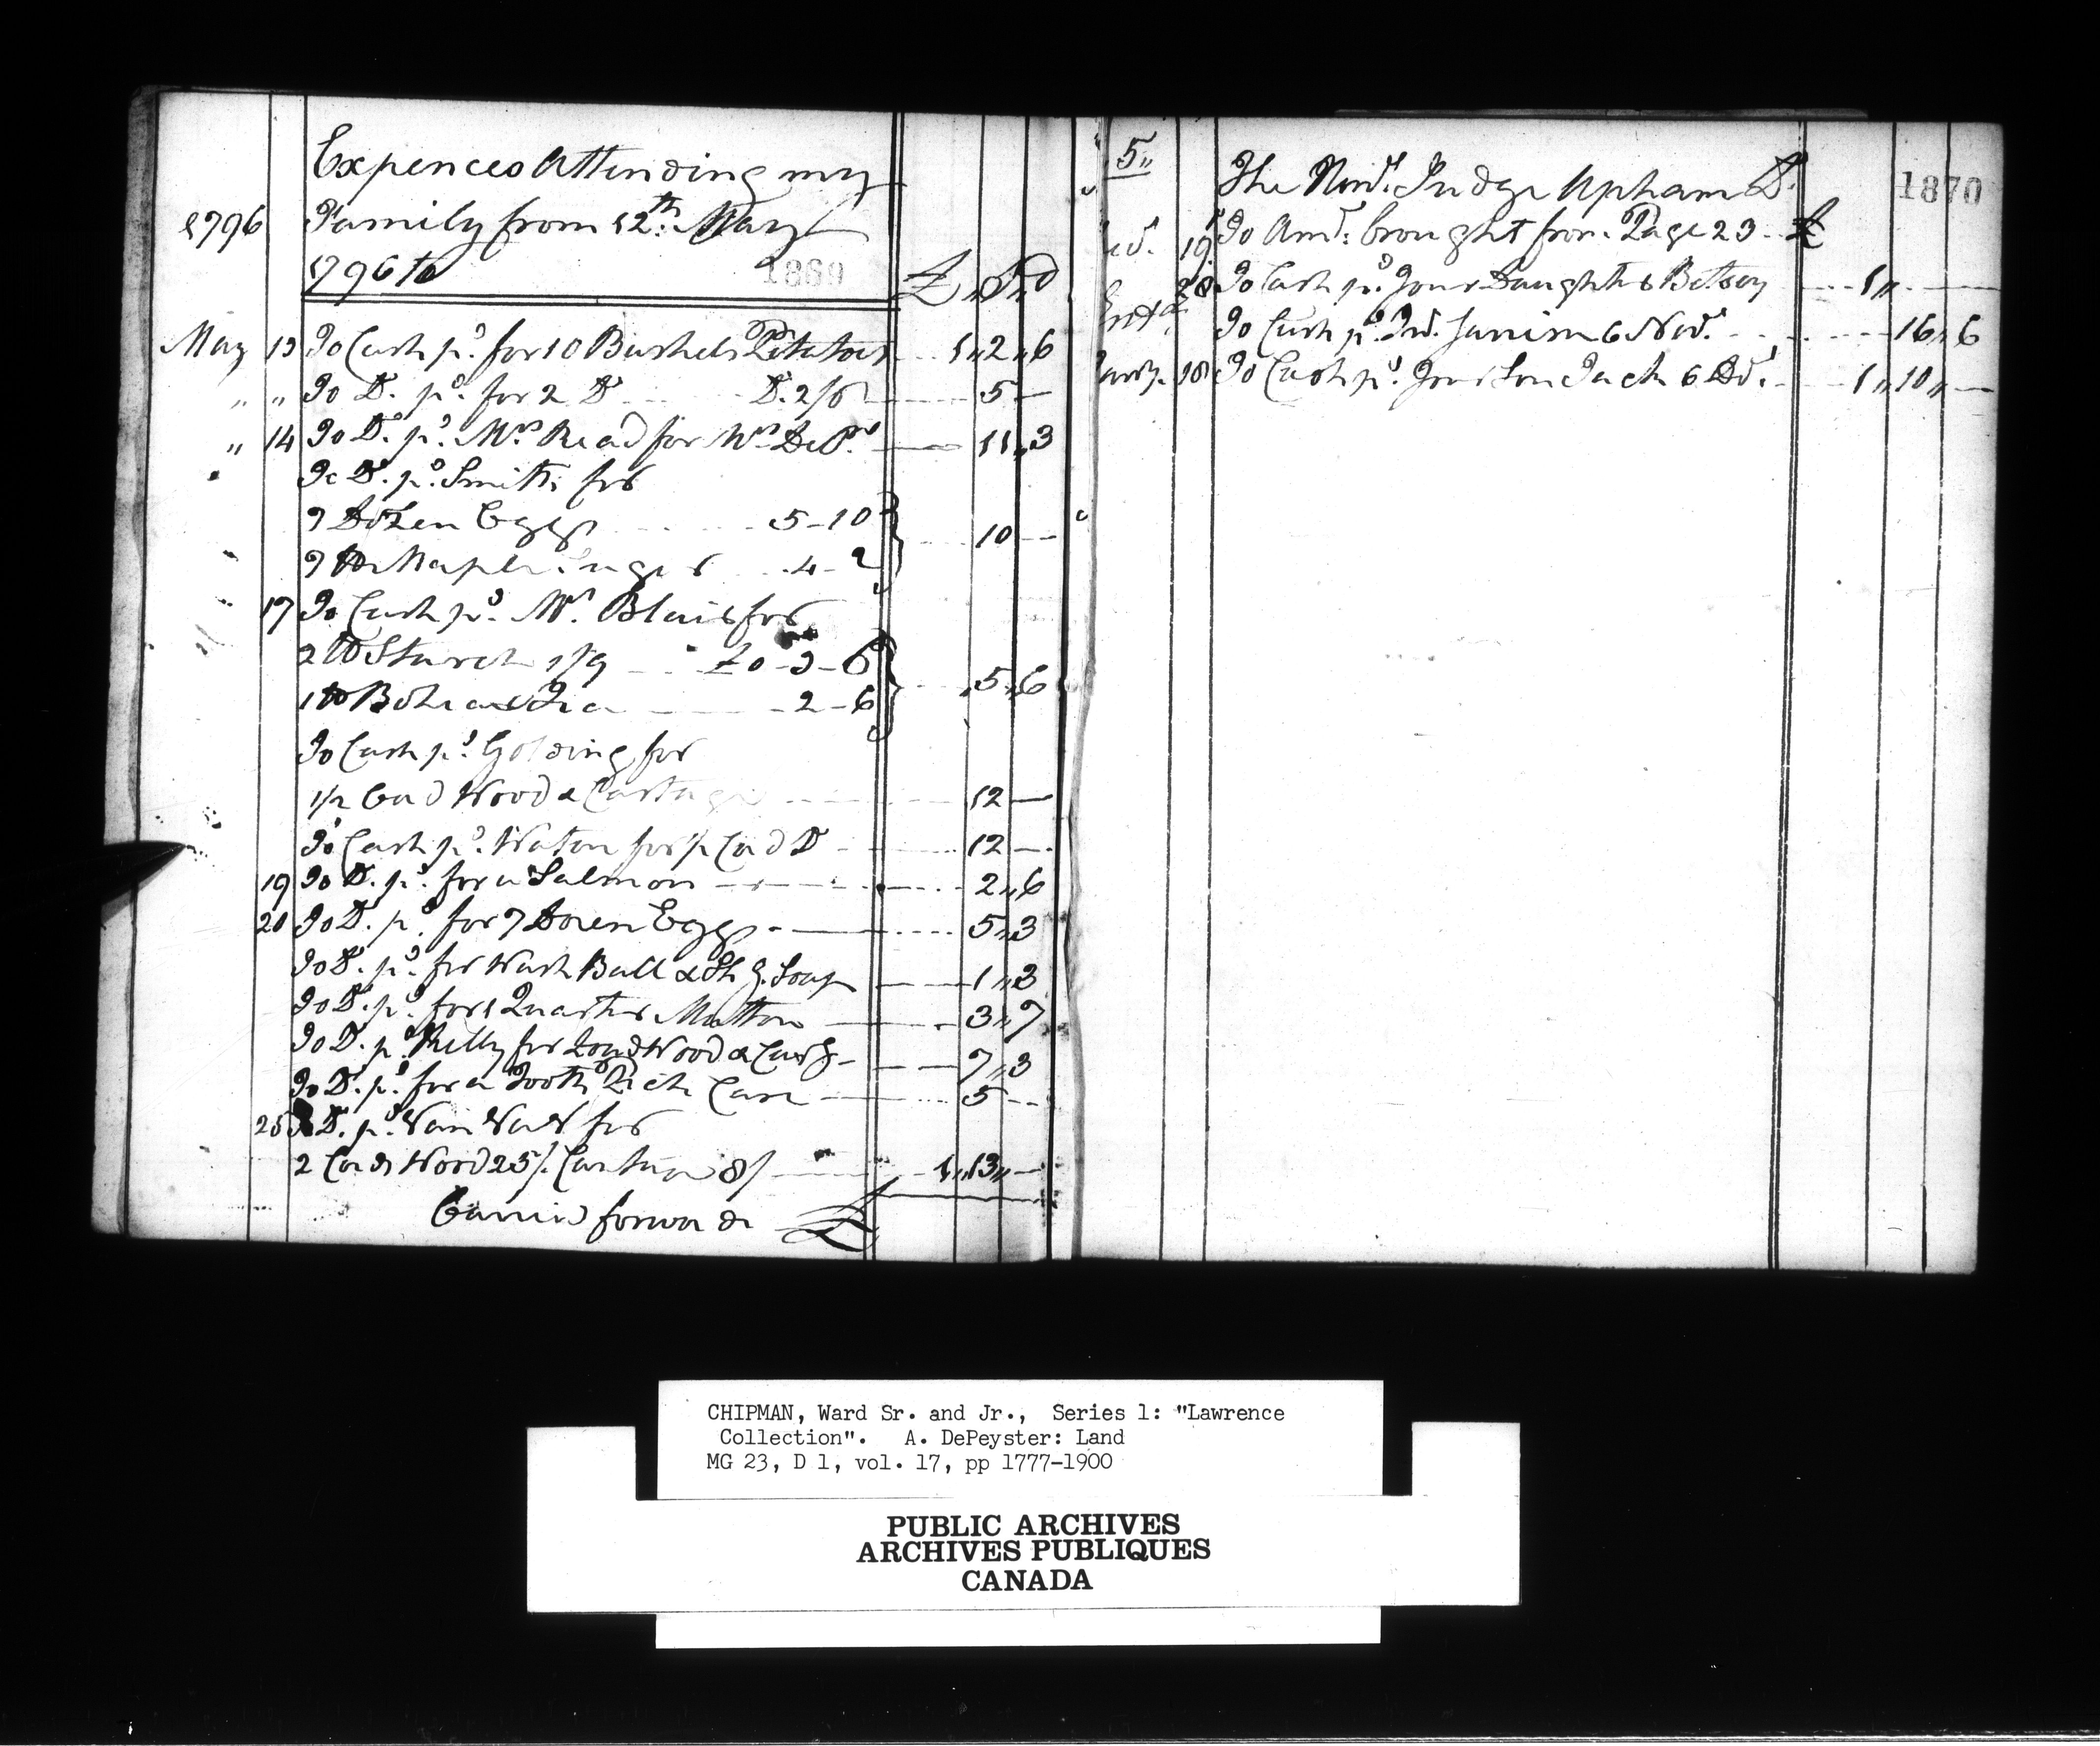 Expences Attending my
1796 Family from 12th May
1796 to
1869
£ „ S „ D
May 13 To Cash pd. for 10 Bushels Potatoes 1„2„6
„ „ To Do. pd. for 2 Do Do. 2/6 5 —
„ 14 To Do. pd. Mrs Read for Mrs DeP. 11„3
To Do. pd. Smith for
7 Dozen Eggs 5-10
10 —
7 lb Maple Sugar 4-2
17 To Cash pd. Mr. Blair for
2 lb Starch 1/9 £0-3-6
5„6
1 lb Bohea Tea 2-6
To Cash pd. Golding for
1/2 Cord Wood & Cartage 12 —
To Cash pd. for 1/2 Cord Do 12 —
19 To Do. pd. for a Salmon 2„6
20 To Do. pd. for 7 Dozen Eggs 5„3
To Do. pd. for Wash Ball & Soap 1„3
To Do. pd. for 1 Quarter Mutton 3„7
To Do. pd. Kelly for Load Wood & Cartg 7„3
To Do. pd. for a Tooth Pick Case 5 --
25 To Do. pd. for
2 Cords Wood 25/. Cartage 8/ 1„13„—
Carried forward £
5„
The Honl. Judge Upham Dr.
1870
19 To Amt. brought from Page 23 £
28 To Cash pd. your Daughter Betsey 1„ —
To Cash pd. 6 Novr. 16„6
18 To Cash pd. your Son Jack 6 Do. 1„10„—
CHIPMAN, Ward Sr. and Jr., Series 1: "Lawrence
Collection". A. DePeyster: Land
MG 23, D 1, vol. 17, pp 1777-1900
PUBLIC ARCHIVES
ARCHIVES PUBLIQUES
CANADA